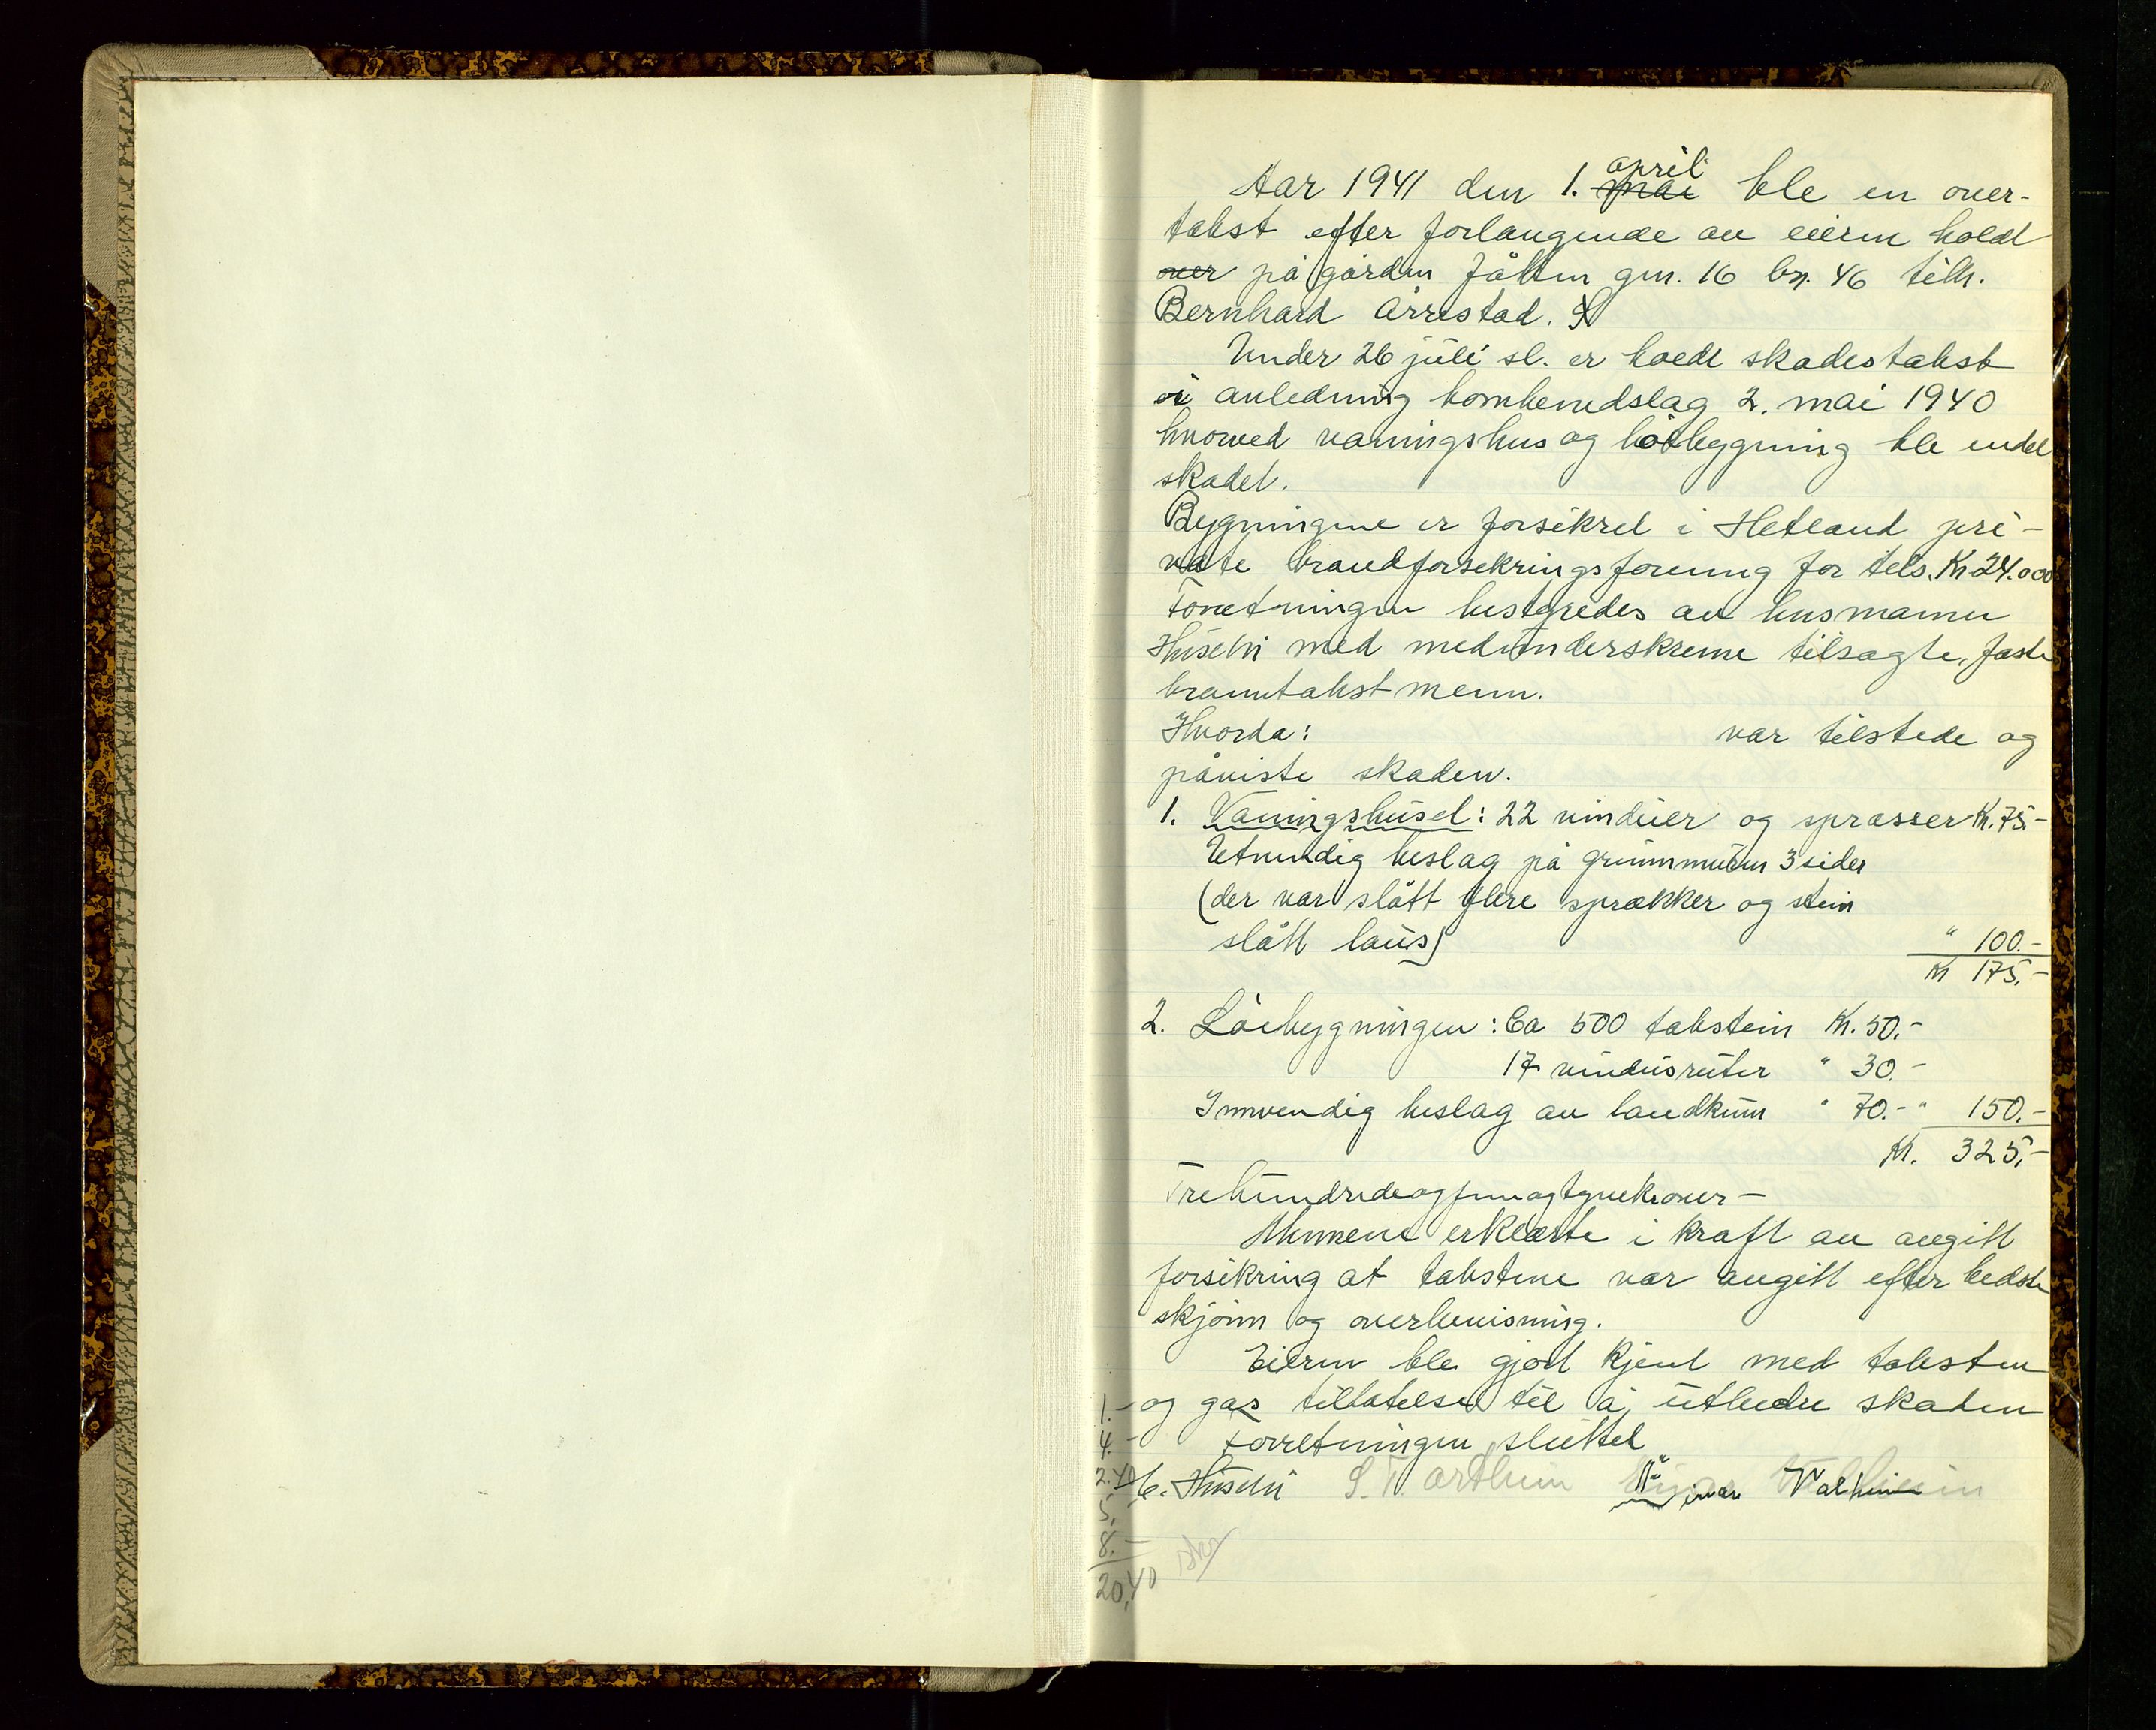 Aar 1941 den 1. april mai ble en over-
takst efter forlangende av eieren holdt
over på gården Jåtten gnr. 16 bn. 46 tilh.
Bernhard Årrestad.
Under 26 juli sl. er holdt skadestakst
i anledning bombenedslag 2. mai 1940
hvorved vaningshus og löebygning ble endel
skadet.
Bygningene er forsikret i Hetland pri-
vate brandforsekringsforening for tils. Kr 24.000
Forretningen bestyredes av
Huseby med medunderskrevne tilsagte, faste
branntakstmenn.
Hvorda: var tilstede og
påviste skaden.
1. Vaningshuset: 22 vinduer og sprosser Kr. 75.-
Utvendig beslag på grunnmuren 3 sider
(der var slått flere sprekker og stein
slått laus) " 100.-
Kr 175.-
2. Löebygningen: Ca 500 takstein Kr. 50.-
17 vindusruter " 30.-
Innvendig beslag av landkum " 70.- " 150.-
Kr. 325.-
Trehundredeogfemogtyvekroner-
Mennene erklærte i kraft av avgitt
forsikring at takstene var avgitt efter bedste
skjönn og overbevisning.
Eieren ble gjort kjent med taksten
1.- og gas tillatelse til å utbedre skaden
4.- Forretningen sluttet
2.40 Huseby S. T. Ortheim Einar Valheim
5,-
8.-
20,40